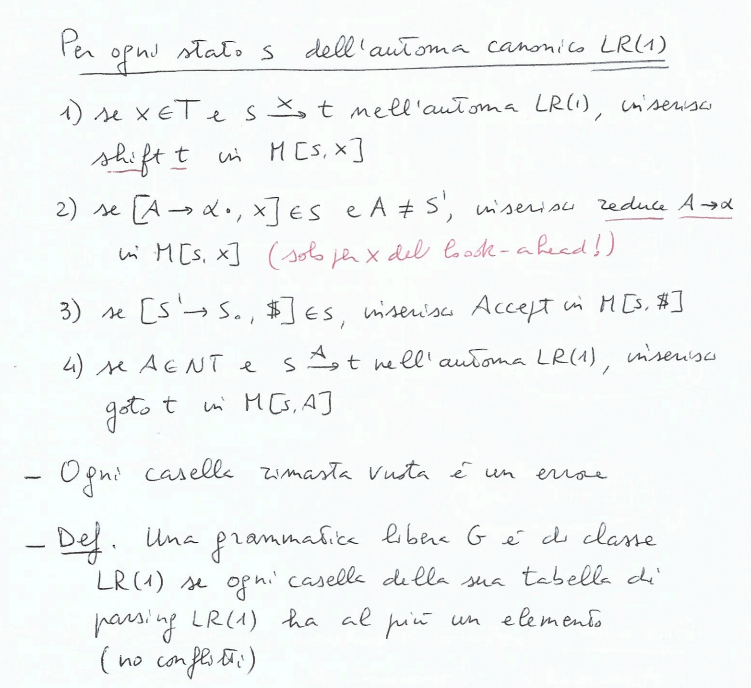 Per ogni stato s dell'automa canonico LR(1)
1) se x ∈ T e s —x→ t nell'automa LR(1), inserisci
shift t in M[s, x]
2) se [A → α•, x] ∈ s e A ≠ S', inserisci reduce A→α
in M[s, x] (solo per x del look-ahead!)
3) se [S' → S•, $] ∈ s, inserisci Accept in M[s, $]
4) se A ∈ NT e s —A→ t nell'automa LR(1), inserisci
goto t in M[s, A]
– Ogni casella rimasta vuota è un errore
– Def. Una grammatica libera G è di classe
LR(1) se ogni casella della sua tabella di
parsing LR(1) ha al più un elemento
(no conflitti)